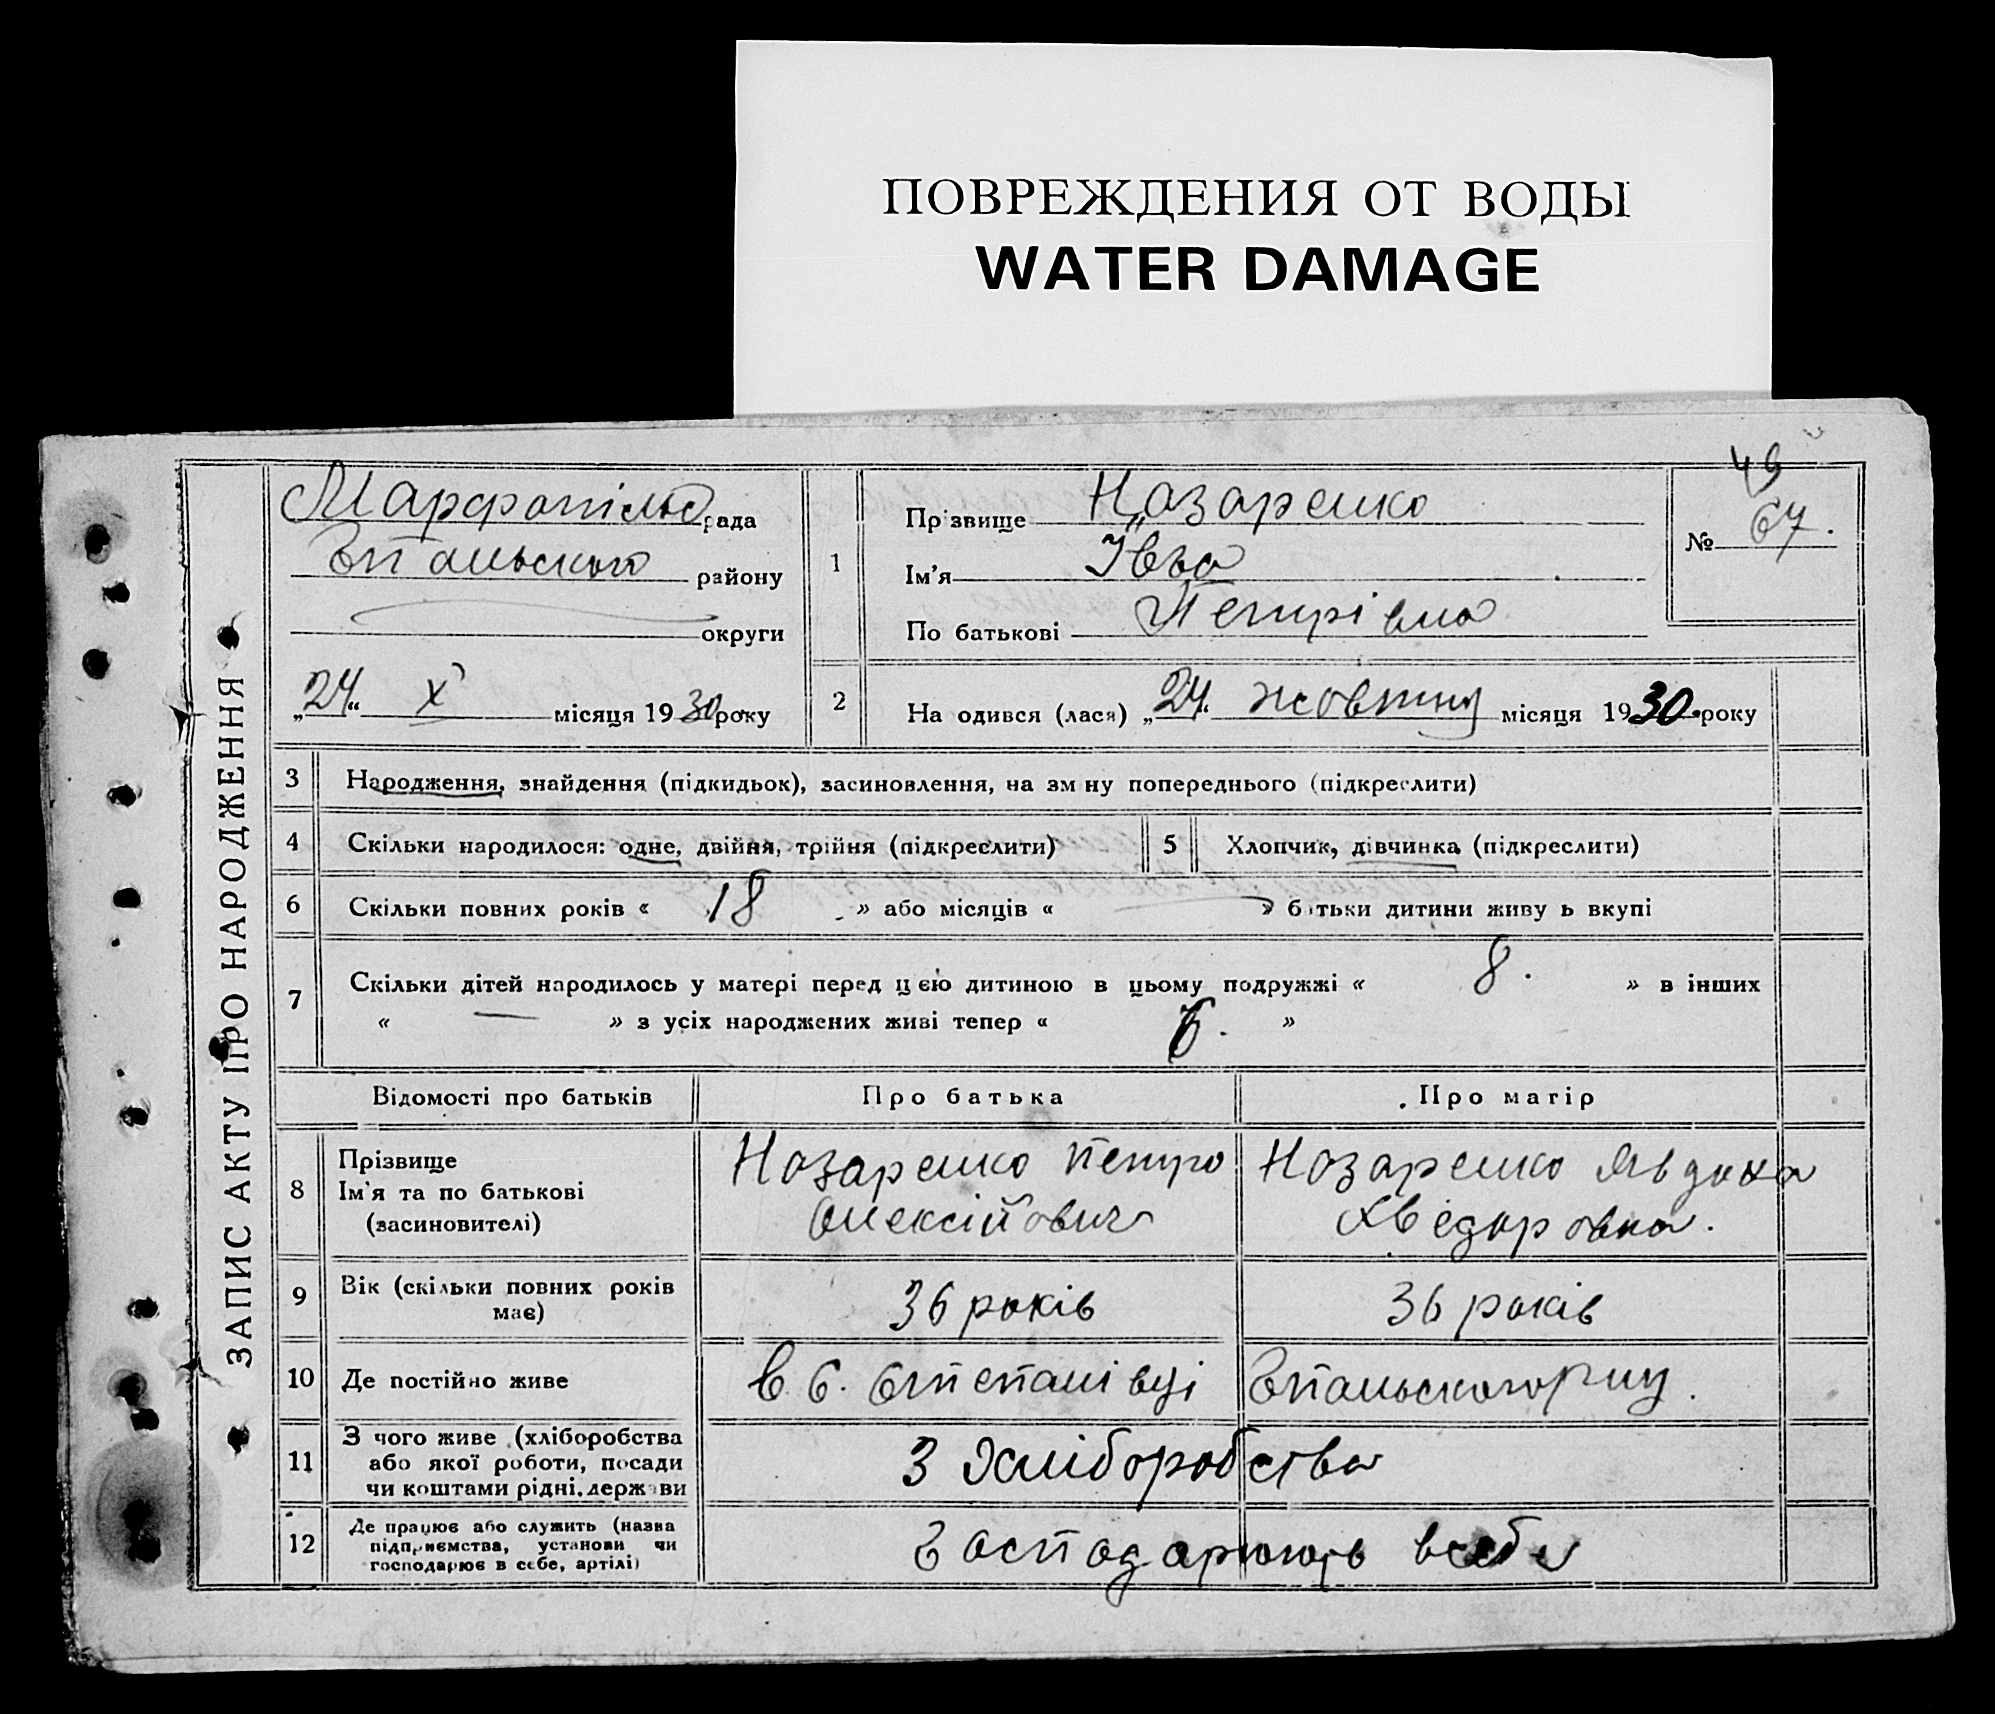 ПОВРЕЖДЕНИЯ ОТ ВОДЫ
WATER DAMAGE
49
ЗАПИС АКТУ ПРО НАРОДЖЕННЯ
рада
району
округи
„24“ X місяця 1930 року
1
Прізвище Назаренко
Ім'я
По батькові Петрівна
№ 67.
2
На одився (лася) „24“ жовтня місяця 1930. року
3 Народження, знайдення (підкидьок), засиновлення, на зм ну попереднього (підкреслити)
4 Скільки народилося: одне, двійня, трійня (підкреслити) 5 Хлопчик, дівчинка (підкреслити)
6 Скільки повних років « 18 » або місяців « — » б тьки дитини живу ь вкупі
7 Скільки дітей народилось у матері перед цією дитиною в цьому подружжі « 8. » в інших
« — » з усіх народжених живі тепер « 6. »
Відомості про батьків Про батька Про матір
8 Прізвище
Ім'я та по батькові
(засиновителі)
Назаренко Петро
Олексійович
Назаренко Явдоха
Хведоровна.
9 Вік (скільки повних років
має)
36 років 36 років
10 Де постійно живе в с. Степанівці
11 З чого живе (хліборобства
або якої роботи, посади
чи коштами рідні, держави
З Хліборобства
12 Де працює або служить (назва
підприємства, установи чи
господарює в себе, артілі)
Господарюють в себе